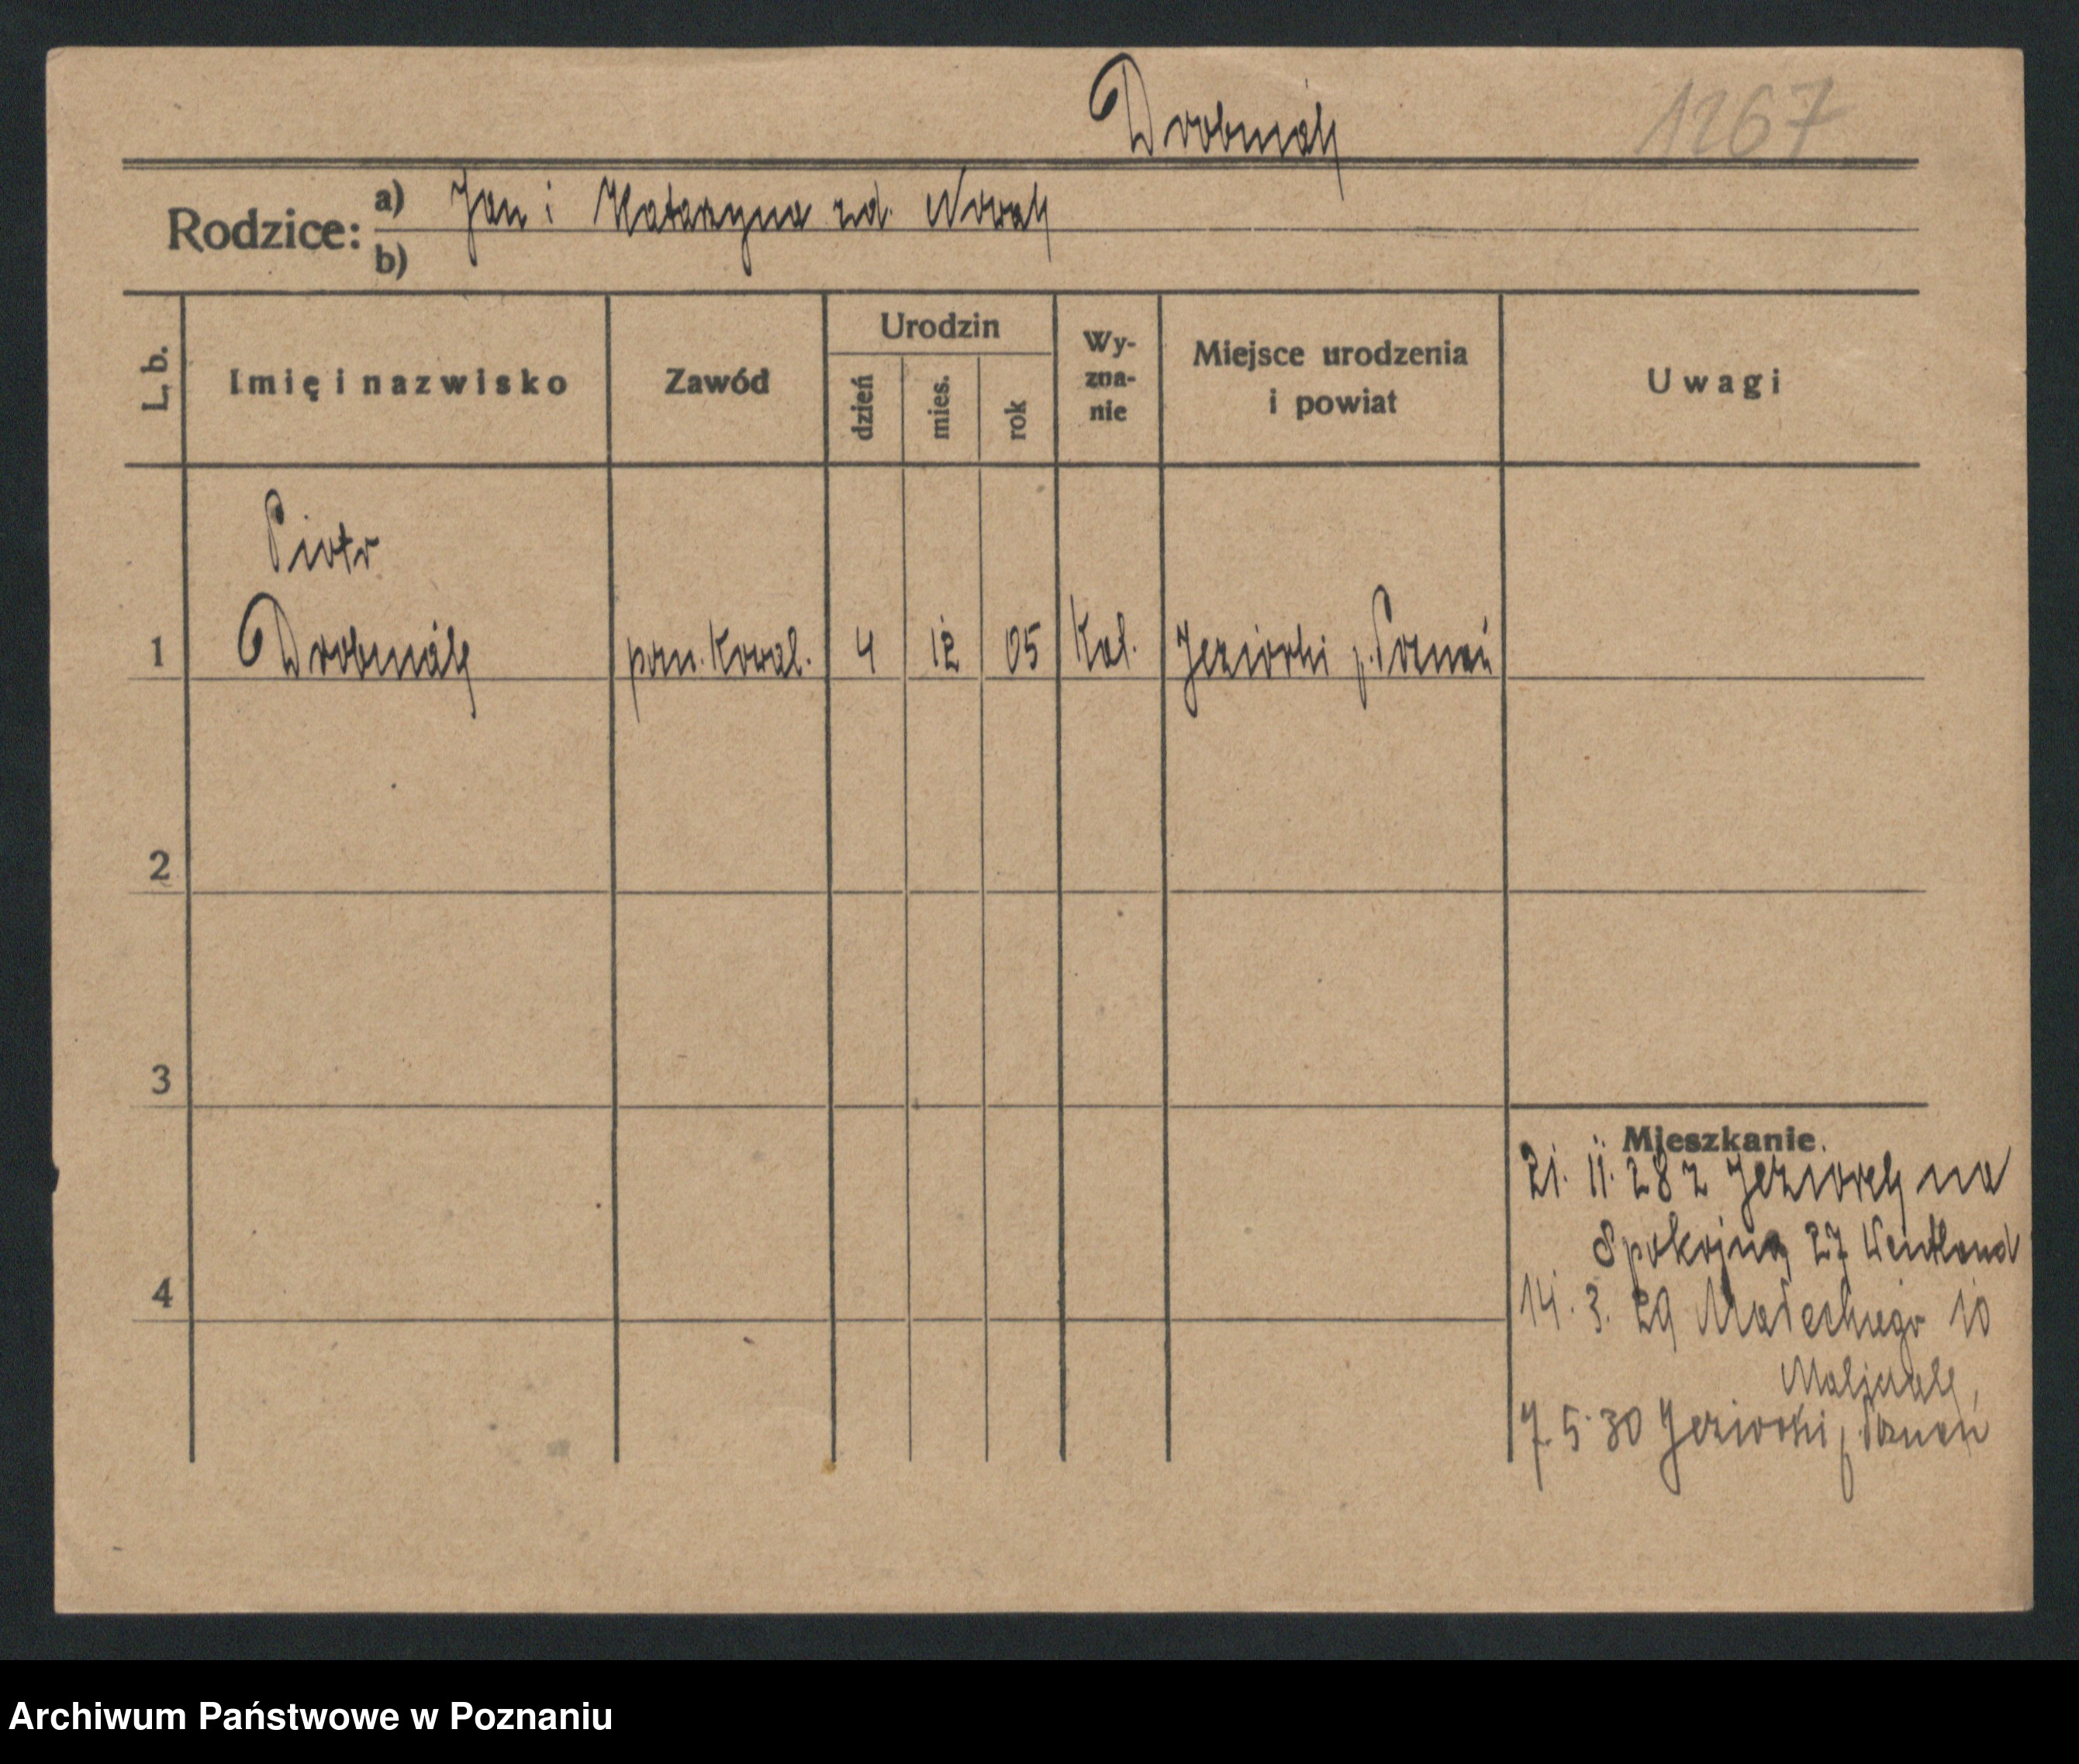 Drobnik
1267
Rodzice: a) Jan i Katarzyna zd. Nowak
b)
L. b.
Imię i nazwisko
Zawód
Urodzin
dzień
mies.
rok
Wy-
zna-
nie
Miejsce urodzenia
i powiat
Uwagi
Piotr
1 Drobnik pom. Kowal. 4 12 05 Kat. Jeziorki p. Poznań
2
3
4
Mieszkanie.
21. 11. 28 z Jeziorek na
Spokojną 27 Wentland
14. 3. 29 Małeckiego 10
7. 5. 30 Jeziorki p. Poznań
Archiwum Państwowe w Poznaniu